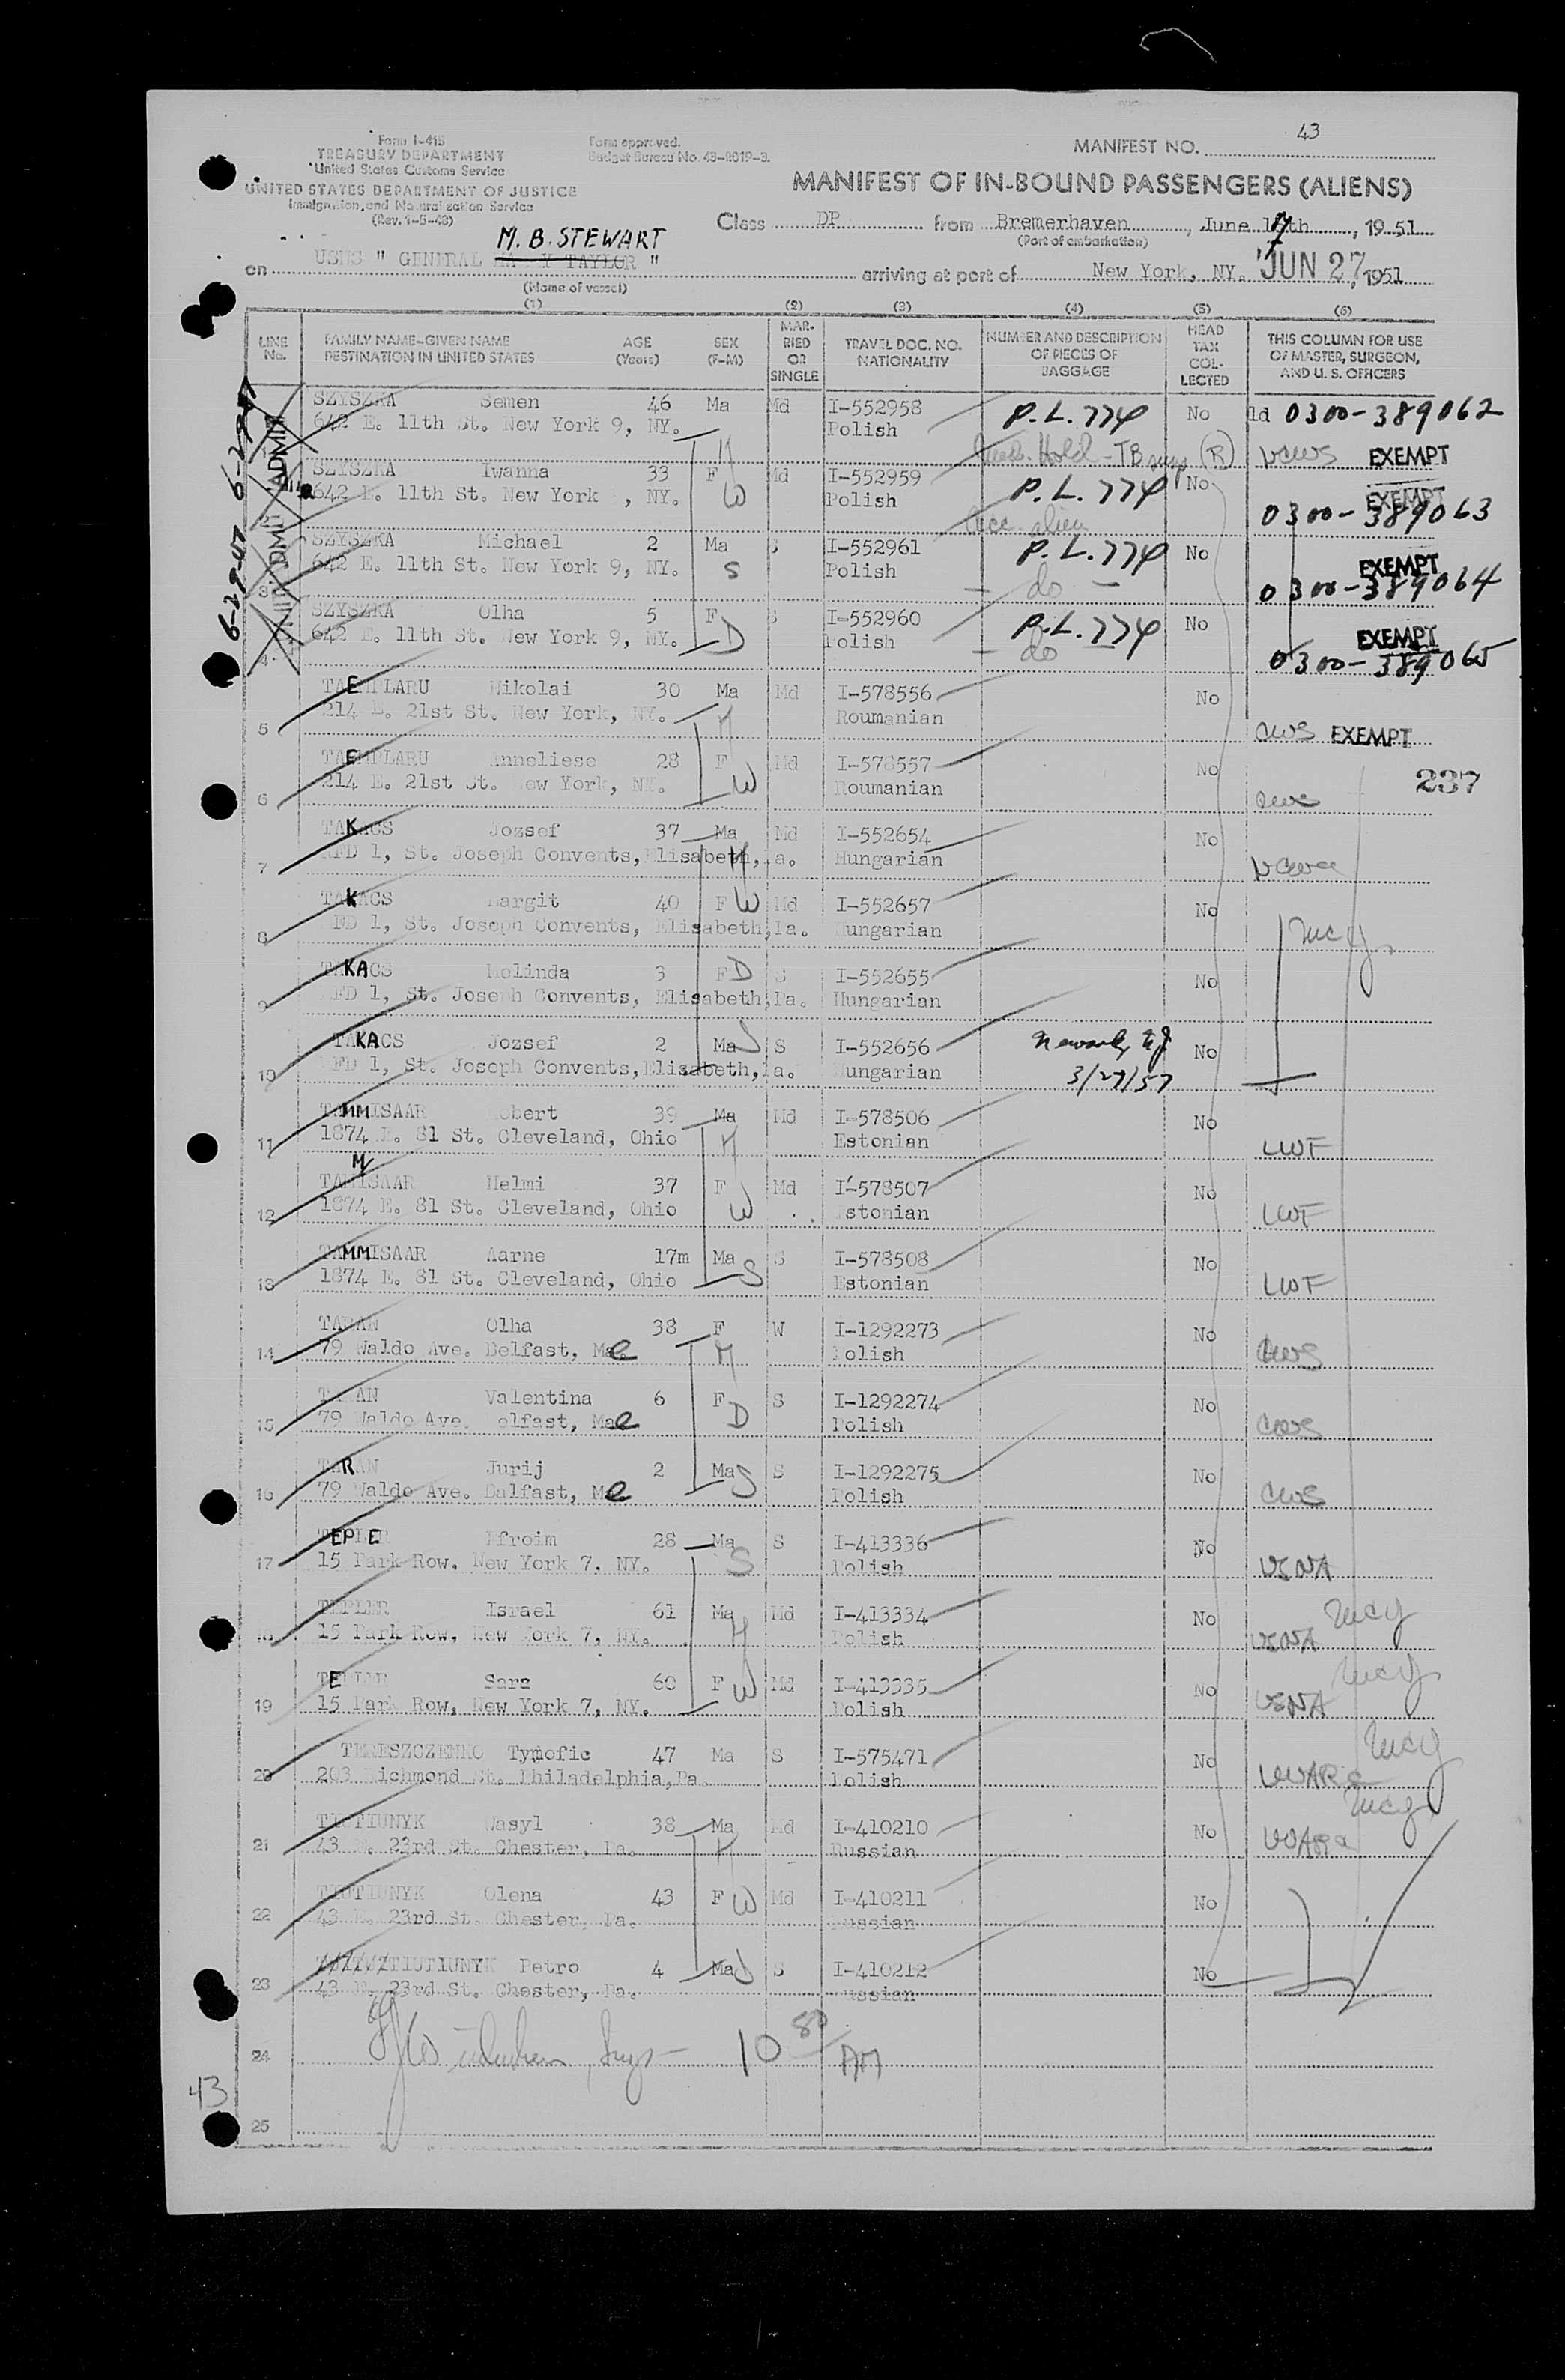 43
Form I-415
TREASURY DEPARTMENT
United States Customs Service
UNITED STATES DEPARTMENT OF JUSTICE
Immigration and Naturalization Service
(Rev. 1-5-48)
Form approved.
Budget Bureau No. 43-R019-3.
MANIFEST NO.
MANIFEST OF IN-BOUND PASSENGERS (ALIENS)
Class DP from Bremerhaven, June 17th, 1951
(Port of embarkation)
M. B. STEWART
on USNS " GENERAL TAYLOR " arriving at port of New York, NY. JUN 27, 1951
(Name of vessel)
(1) (2) (3) (4) (5) (6)
LINE No.
FAMILY NAME-GIVEN NAME
DESTINATION IN UNITED STATES
AGE (Years)
SEX (F-M)
MARRIED OR SINGLE
TRAVEL DOC. NO. NATIONALITY
NUMBER AND DESCRIPTION OF PIECES OF BAGGAGE
HEAD TAX COLLECTED
THIS COLUMN FOR USE OF MASTER, SURGEON, AND U. S. OFFICERS
SZYSZKA Semen 46 Ma Md I-552958 P.L. 774 No ld 0300-389062
642 E. 11th St. New York 9, NY. H Polish Hold - TB R EXEMPT
SZYSZKA Iwanna 33 F Md I-552959 P.L. 774 No EXEMPT
2 642 E. 11th St. New York , NY. W Polish Acc. alien 0300-389063
SZYSZKA Michael 2 Ma S I-552961 P.L. 774 No EXEMPT
3 642 E. 11th St. New York 9, NY. S Polish - do - 0300-389064
SZYSZKA Olha 5 F S I-552960 P.L. 774 No EXEMPT
4 642 E. 11th St. New York 9, NY. D Polish - do - 0300-389065
Nikolai 30 Ma Md I-578556 No
5 214 E. 21st St. New York, NY. H Roumanian cws EXEMPT
Anneliese 28 F Md I-578557 No 237
6 214 E. 21st St. New York, NY. W Roumanian
TAKACS Jozsef 37 Ma Md I-552654 No
7 RFD 1, St. Joseph Convents, Elisabeth, Pa. H Hungarian
TAKACS Margit 40 F W Md I-552657 No
8 RFD 1, St. Joseph Convents, Elisabeth, Pa. Hungarian
TAKACS Melinda 3 F D S I-552655 No
9 RFD 1, St. Joseph Convents, Elisabeth, Pa. Hungarian
TAKACS Jozsef 2 Ma S S I-552656 Newark NJ No
10 RFD 1, St. Joseph Convents, Elisabeth, Pa. Hungarian 3/27/57
TAMMISAAR Robert 39 Ma Md I-578506 No
11 1874 E. 81 St. Cleveland, Ohio H Estonian LWF
M
TAMISAAR Helmi 37 F Md I-578507 No
12 1874 E. 81 St. Cleveland, Ohio W Estonian LWF
TAMMISAAR Aarne 17m Ma S I-578508 No
13 1874 E. 81 St. Cleveland, Ohio S Estonian LWF
TARAN Olha 38 F W I-1292273 No
14 79 Waldo Ave. Belfast, Me Polish CWS
TARAN Valentina 6 F S I-1292274 No
15 79 Waldo Ave. Belfast, Me D Polish CWS
TARAN Jurij 2 Ma S S I-1292275 No
16 79 Waldo Ave. Balfast, Me Polish CWS
TEPLER Efroim 28 Ma S I-413336 No
17 15 Park Row, New York 7, NY. S Polish USNA
TEPLER Israel 61 Ma Md I-413334 No
15 Park Row, New York 7, NY. H Polish USNA
TEPLER Sara 60 F W Md I-413335 No
19 15 Park Row, New York 7, NY. Polish USNA
TERESZCZENKO Tymofie 47 Ma S I-575471 No
20 203 Richmond St. Philadelphia, Pa Polish
TIUTIUNYK Wasyl 38 Ma Md I-410210 No
21 43 E. 23rd St. Chester, Pa. H Russian
TIUTIUNYK Olena 43 F W Md I-410211 No
22 43 E. 23rd St. Chester, Pa. Russian
TIUTIUNYK Petro 4 Ma S S I-410212 No
23 43 E. 23rd St. Chester, Pa. Russian
24 10 AM
43
25